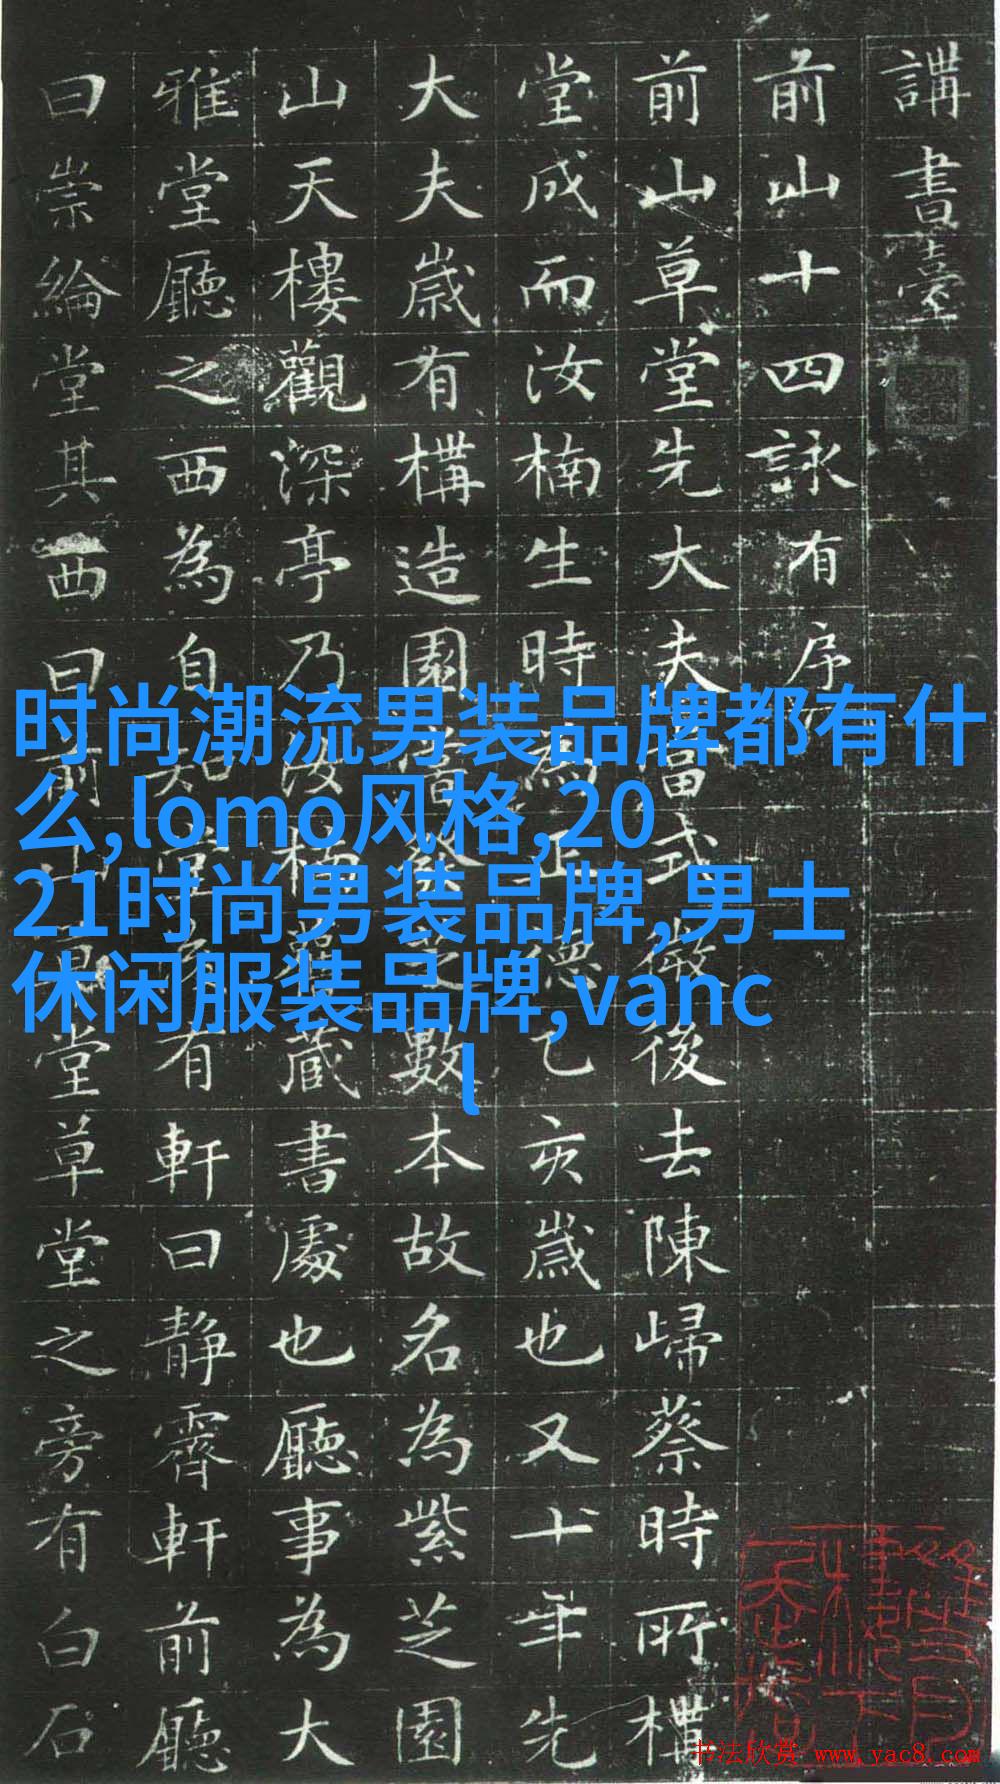 講書臺
前山十四詠有序
前山草堂先大夫當式微後去陳歸蔡時所構
堂成而汝楠生時為正德乙亥歲也又十年先
大夫歲有構造園嘗發芝數本故名為紫芝園
山天樓觀深亭乃汝楠藏書處也廳事為大
雅堂廳之西為自知堂有軒曰靜霽軒前廳
曰崇綸堂其西曰前山堂草堂之旁有白石
时尚潮流男装品牌都有什
么,lomo风格,20
21时尚男装品牌,男士
休闲服装品牌,vanc
l
书法欣赏 www.yac8.com